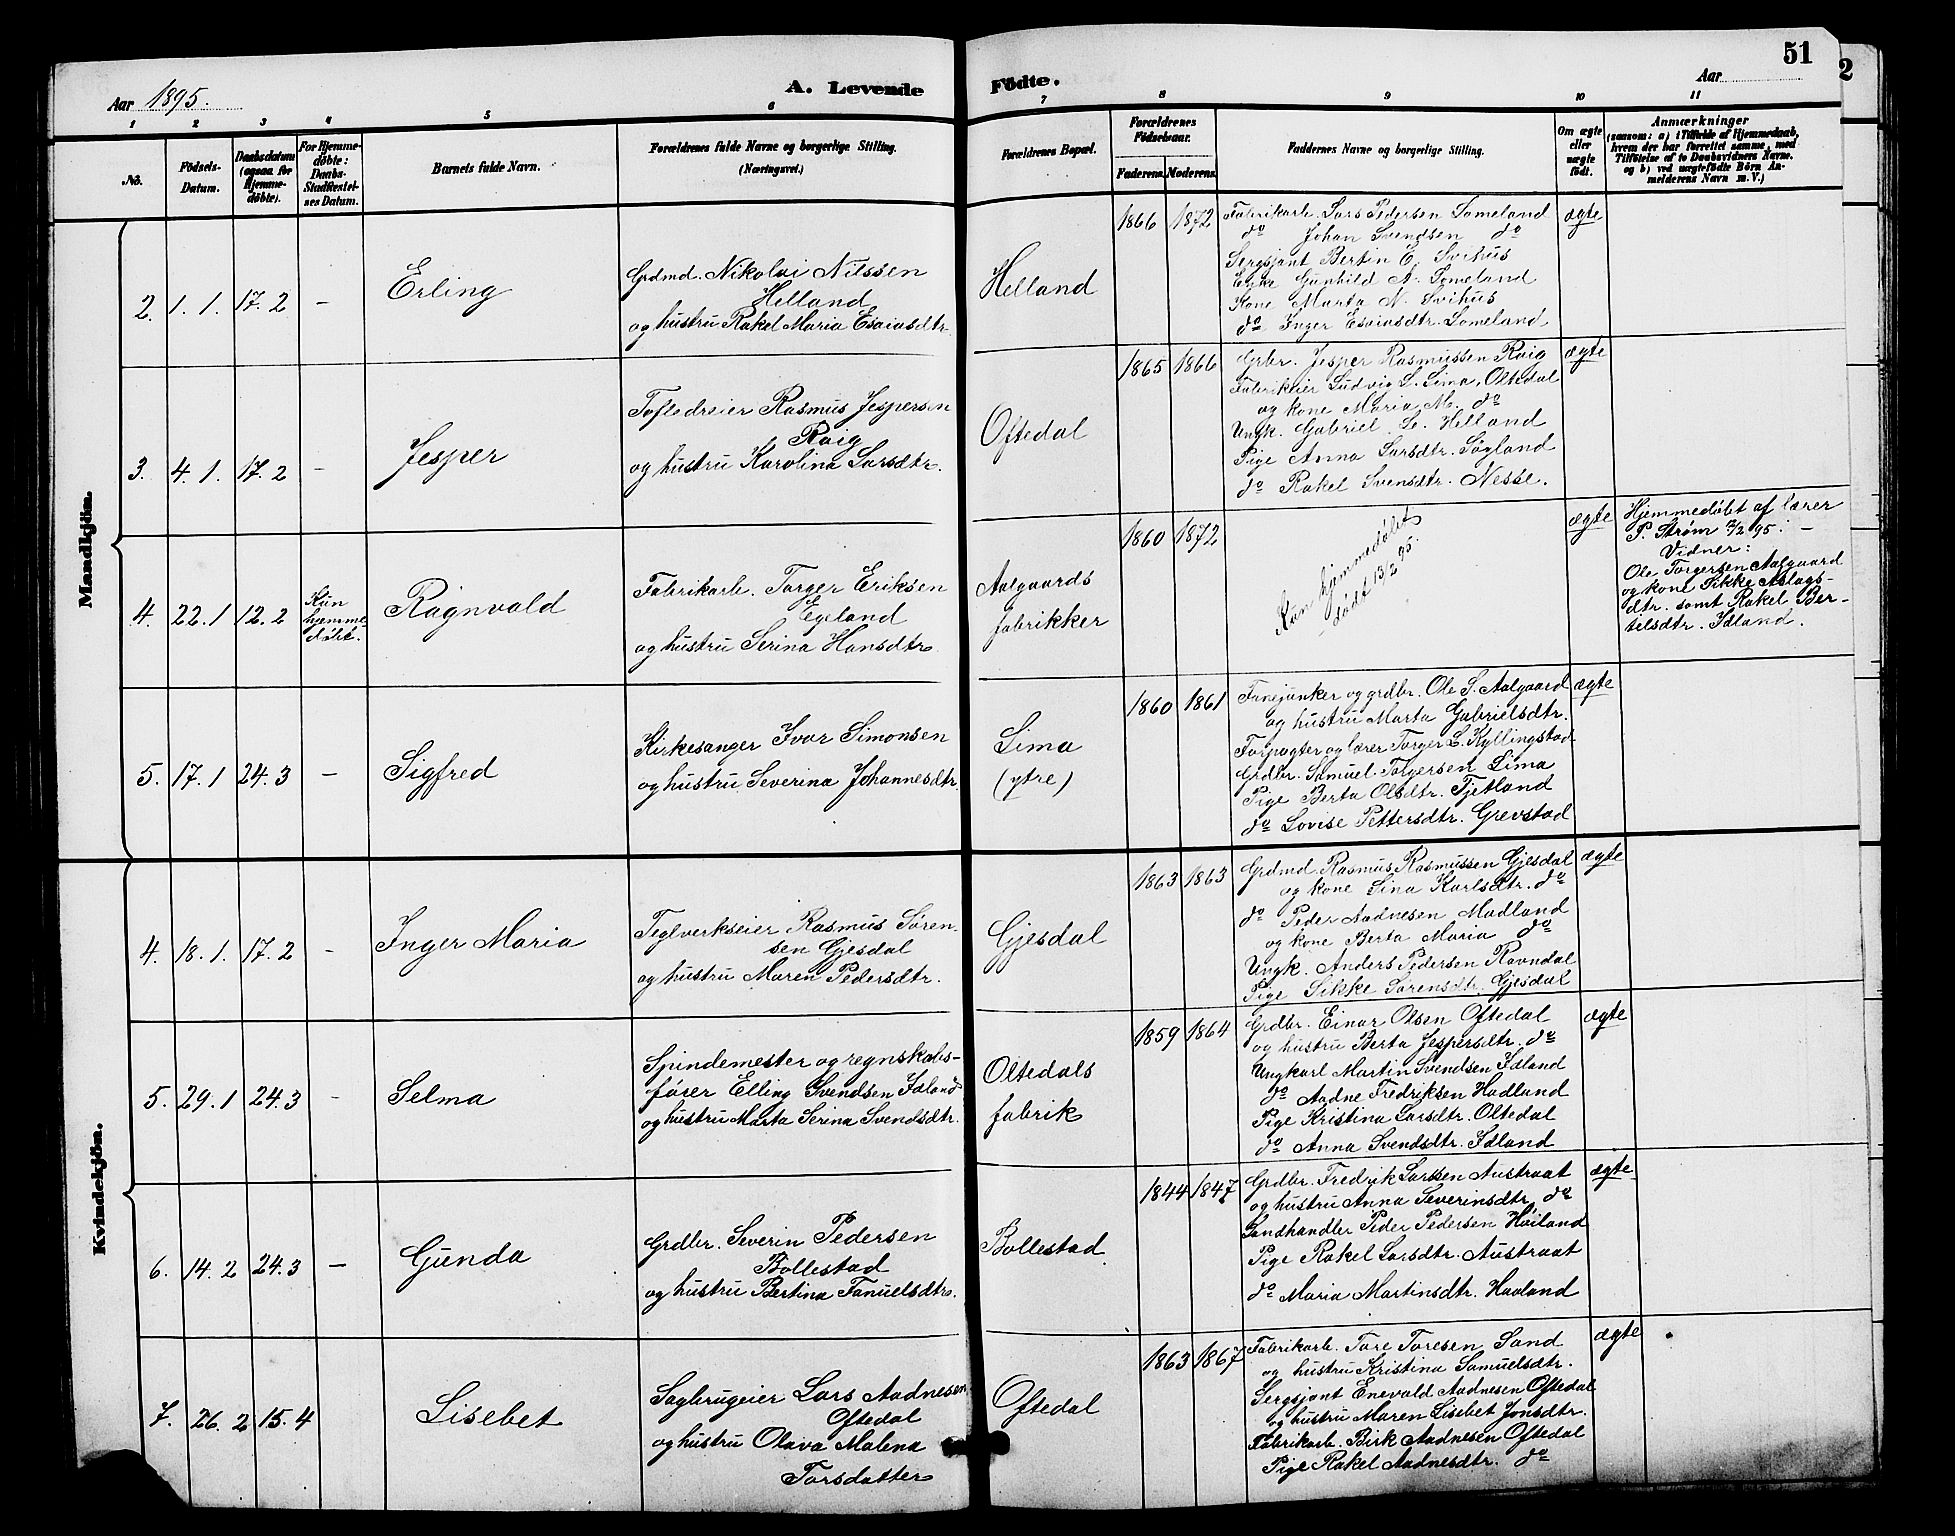 51
2
Aar 1895.
A. Levende
Födte.
Aar
1
2
3
4
5
6
7
8
9
10
11
No.
Födsels-
Datum.
Daabsdatum
(ogsaa for
Hjemme-
döbte).
For Hjemme-
döbte:
Daabs-
Stadfæstel-
ses Datum.
Barnets fulde Navn.
Forældrenes fulde Navne og borgerlige Stilling.
(Næringsvei.)
Forældrenes Bopæl.
Forældrenes
Födselsaar.
Faderens.
Moderens.
Faddernes Navne og borgerlige Stilling.
Om ægte
eller
uægte
födt.
Anmærkninger
(saasom: a) i Tilfælde af Hjemmedaab,
hvem der har forrettet samme, med
Tilföielse af to Daabsvidners Navne.
og b) ved uægtefödte Börn An-
melderens Navn m. V.)
Mandkjön.
2. 1. 1. 17. 2 –
Erling
Grdmd. Nikolai Nilssen
Helland
og hustru Rakel Maria Esaiasdtr.
Helland
1866 1872
Fabrikarb. Lars Pedersen Lomeland
do Johan Svendsen do
Sergsjant Bertin E. Svihus
Enke Gunhild A. Lomeland
Kone Marta N. Svihus
do Inger Esaiasdtr. Lomeland
ægte
3. 4. 1. 17. 2 –
Jesper
Tøfledreier Rasmus Jespersen
Roig
og hustru Karolina Larsdtr.
Oftedal
1865 1866
Grbr. Jesper Rasmussen Roig
Fabrikeier Ludvig L. Lima, Oltedal
og kone Maria M. do
Ungk. Gabriel L. Helland
Pige Anna Larsdtr. Søyland
do Rakel Svensdtr. Nesse.
ægte
4. 22. 1 12. 2
Kun
hjemme
døbt.
Ragnvald
Fabrikarb. Torger Eriksen
Egeland
og hustru Serina Hansdtr.
Aalgaards
fabrikker
1860 1872
Kun hjemmedøbt
– dødt 13/2 95.
ægte
Hjemmedøbt af lærer
P. Strøm 12/2 95: –
Vidner:
Ole Torgersen Aalgaard
og kone Sikke Aslags-
dtr. samt Rakel Ber-
telsdtr. Idland.
5. 17. 1 24. 3 –
Sigfred
Kirkesanger Ivar Simonsen
og hustru Severina Johannesdtr.
Lima
(ytre)
1860 1861
Fanejunker og grdbr. Ole S. Aalgaard
og hustru Marta Gabrielsdtr.
Forpagter og lærer Torger L. Kyllingstad
Grdbr. Samuel Torgersen Lima
Pige Berta Olsdtr. Tjetland
do Lovise Pettersdtr. Grevstad
ægte
Kvindekjön.
4. 18. 1. 17. 2 –
Inger Maria
Teglverkseier Rasmus Søren-
sen Gjesdal
og hustru Maren Pedersdtr.
Gjesdal
1863 1863
Grdmd. Rasmus Rasmussen Gjesdal
og kone Sina Karlsdtr. do
do Peder Aadnesen Madland
og kone Berta Maria do
Ungk. Anders Pedersen Ravndal
Pige Sikke Sørensdtr. Gjesdal
ægte
5. 29. 1 24. 3 –
Selma
Spindemester og regnskabs-
fører Elling Svendsen Idland
og hustru Marta Serina Svendsdtr.
Oltedals
fabrik
1859 1864
Grdbr. Einar Olsen Oftedal
og hustru Berta Jespersdtr. do
Ungkarl Martin Svendsen Idland
do Aadne Fredriksen Hadland
Pige Kristina Larsdtr. Oltedal
do Anna Svendsdtr. Idland
ægte
6. 14. 2 24. 3 –
Gunda
Grdbr. Severin Pedersen
Bollestad
og hustru Bertina Fanuelsdtr.
Bollestad
1844 1847
Grdbr. Fredrik Larssen Austraat
og hustru Anna Severinsdtr. do
Landhandler Peder Pedersen Høiland
Pige Rakel Larsdtr. Austraat
do Maria Martinsdtr. Haaland
ægte
7. 26. 2 15. 4
Lisebet
Sagbrugeier Lars Aadnesen
Oftedal
og hustru Olava Malena
Torsdatter
Oftedal
1863 1867
Fabrikarb. Tore Toresen Sand
og hustru Kristina Samuelsdtr.
Sergsjant Enevald Aadnesen Oftedal
og hustru Maren Lisebet Jonsdtr.
Fabrikarb. Birk Aadnesen Oftedal
Pige Rakel Aadnesdtr. do
ægte